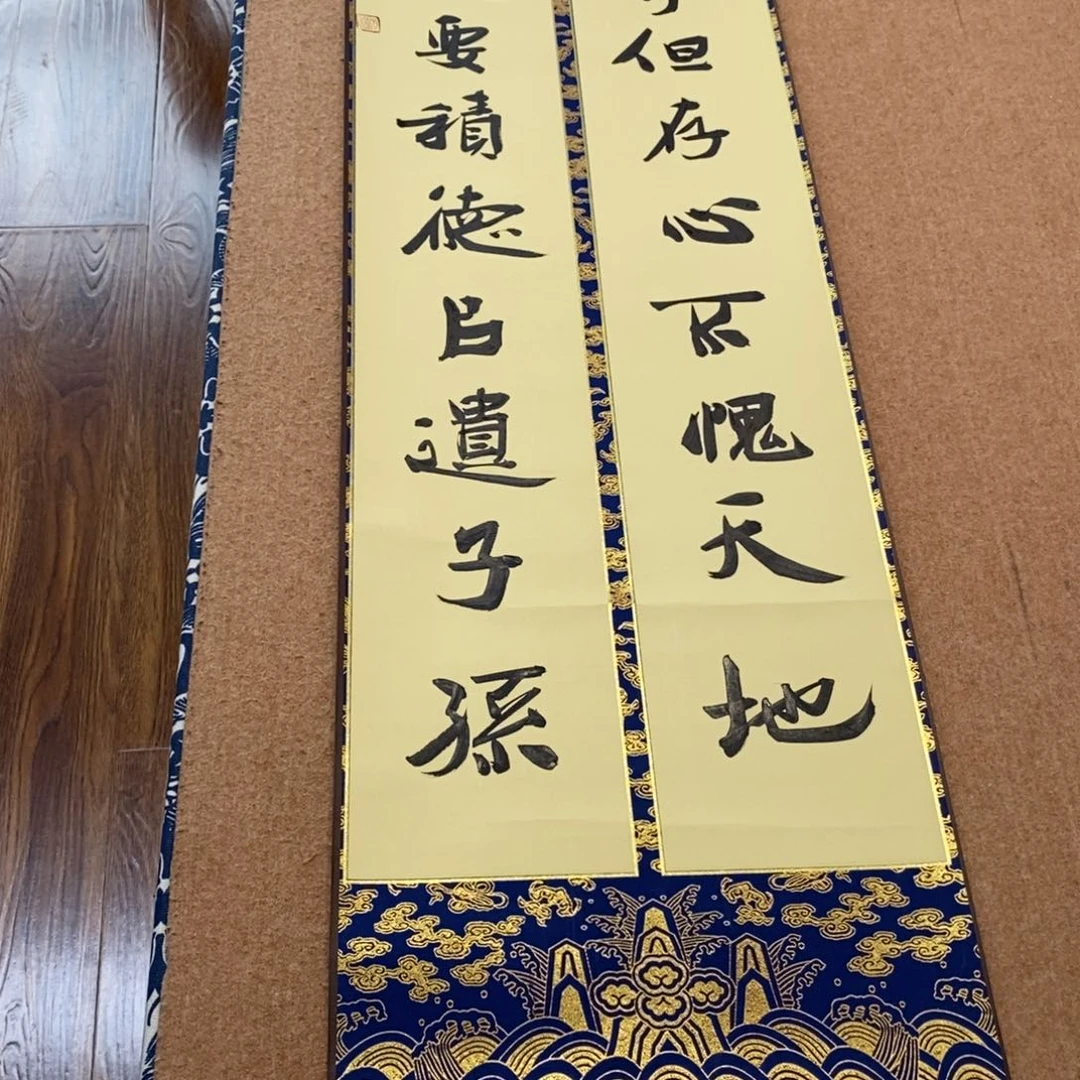 但存心不愧天地
要積德㠯遺子孫